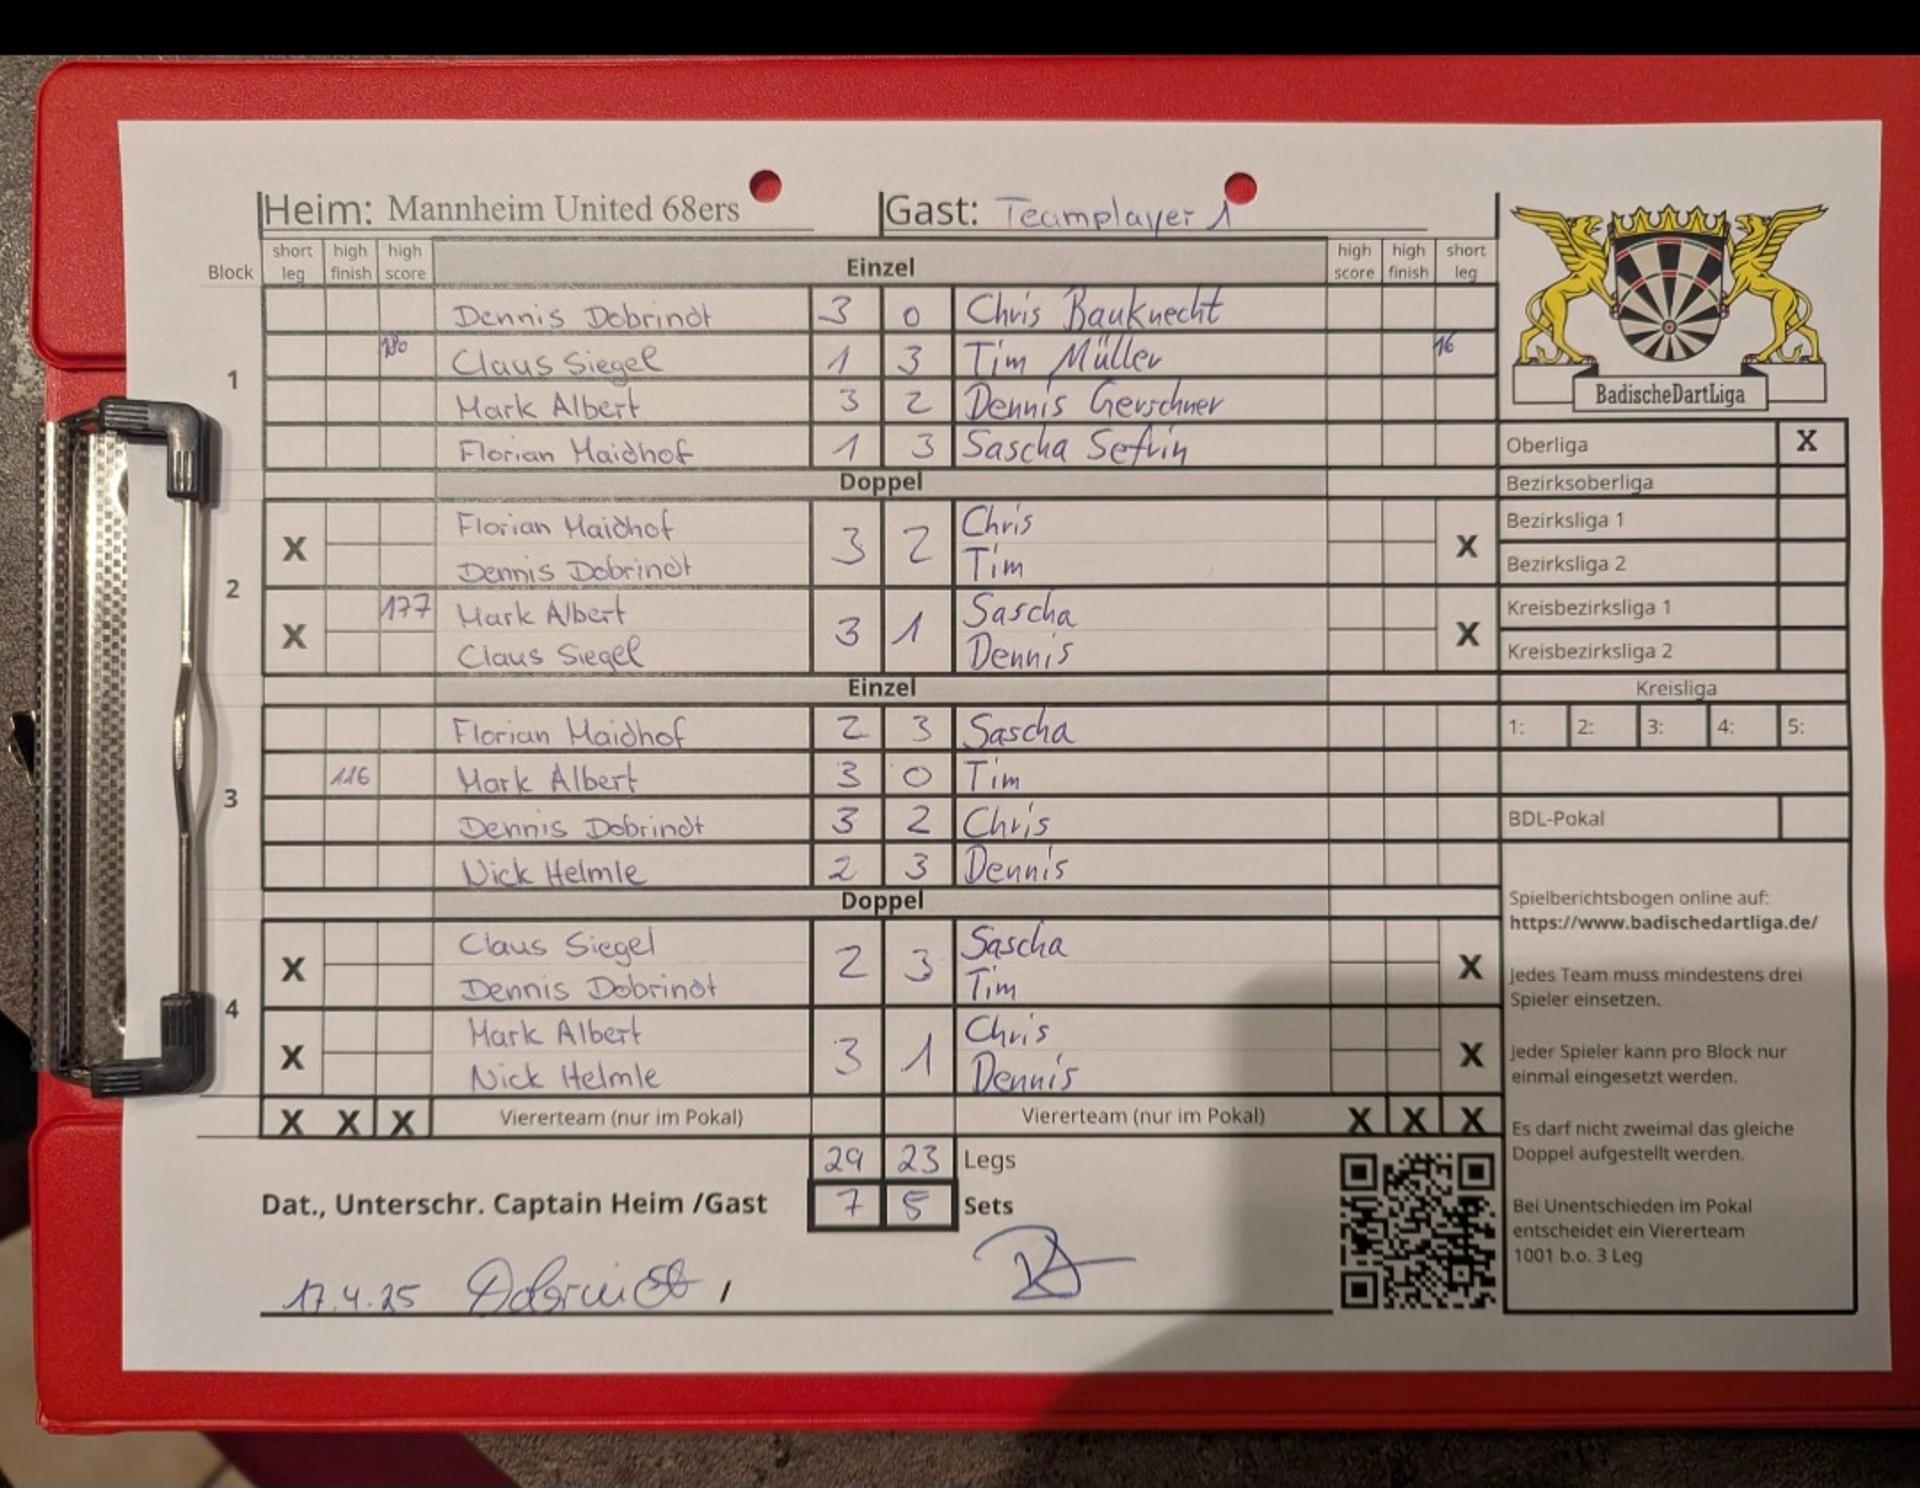 Heim: Mannheim United 68ers Gast: Teamplayer 1
Block short leg high finish high score Einzel high score high finish short leg
Dennis Dobrindt 3 0 Chris Bauknecht
1 180 Claus Siegel 1 3 Tim Müller 16
Mark Albert 3 2 Dennis Gerschner
Florian Maidhof 1 3 Sascha Sefrin
Doppel
X Florian Maidhof 3 2 Chris X
Dennis Dobrindt Tim
2
X 177 Mark Albert 3 1 Sascha X
Claus Siegel Dennis
Einzel
Florian Maidhof 2 3 Sascha
3 116 Mark Albert 3 0 Tim
Dennis Dobrindt 3 2 Chris
Nick Helmle 2 3 Dennis
Doppel
X Claus Siegel 2 3 Sascha X
Dennis Dobrindt Tim
4
X Mark Albert 3 1 Chris X
Nick Helmle Dennis
X X X Viererteam (nur im Pokal) Viererteam (nur im Pokal) X X X
29 23 Legs
Dat., Unterschr. Captain Heim /Gast 7 5 Sets
17.4.25 Dobrindt /
BadischeDartLiga
Oberliga X
Bezirksoberliga
Bezirksliga 1
Bezirksliga 2
Kreisbezirksliga 1
Kreisbezirksliga 2
Kreisliga
1: 2: 3: 4: 5:
BDL-Pokal
Spielberichtsbogen online auf:
https://www.badischedartliga.de/
Jedes Team muss mindestens drei
Spieler einsetzen.
Jeder Spieler kann pro Block nur
einmal eingesetzt werden.
Es darf nicht zweimal das gleiche
Doppel aufgestellt werden.
Bei Unentschieden im Pokal
entscheidet ein Viererteam
1001 b.o. 3 Leg